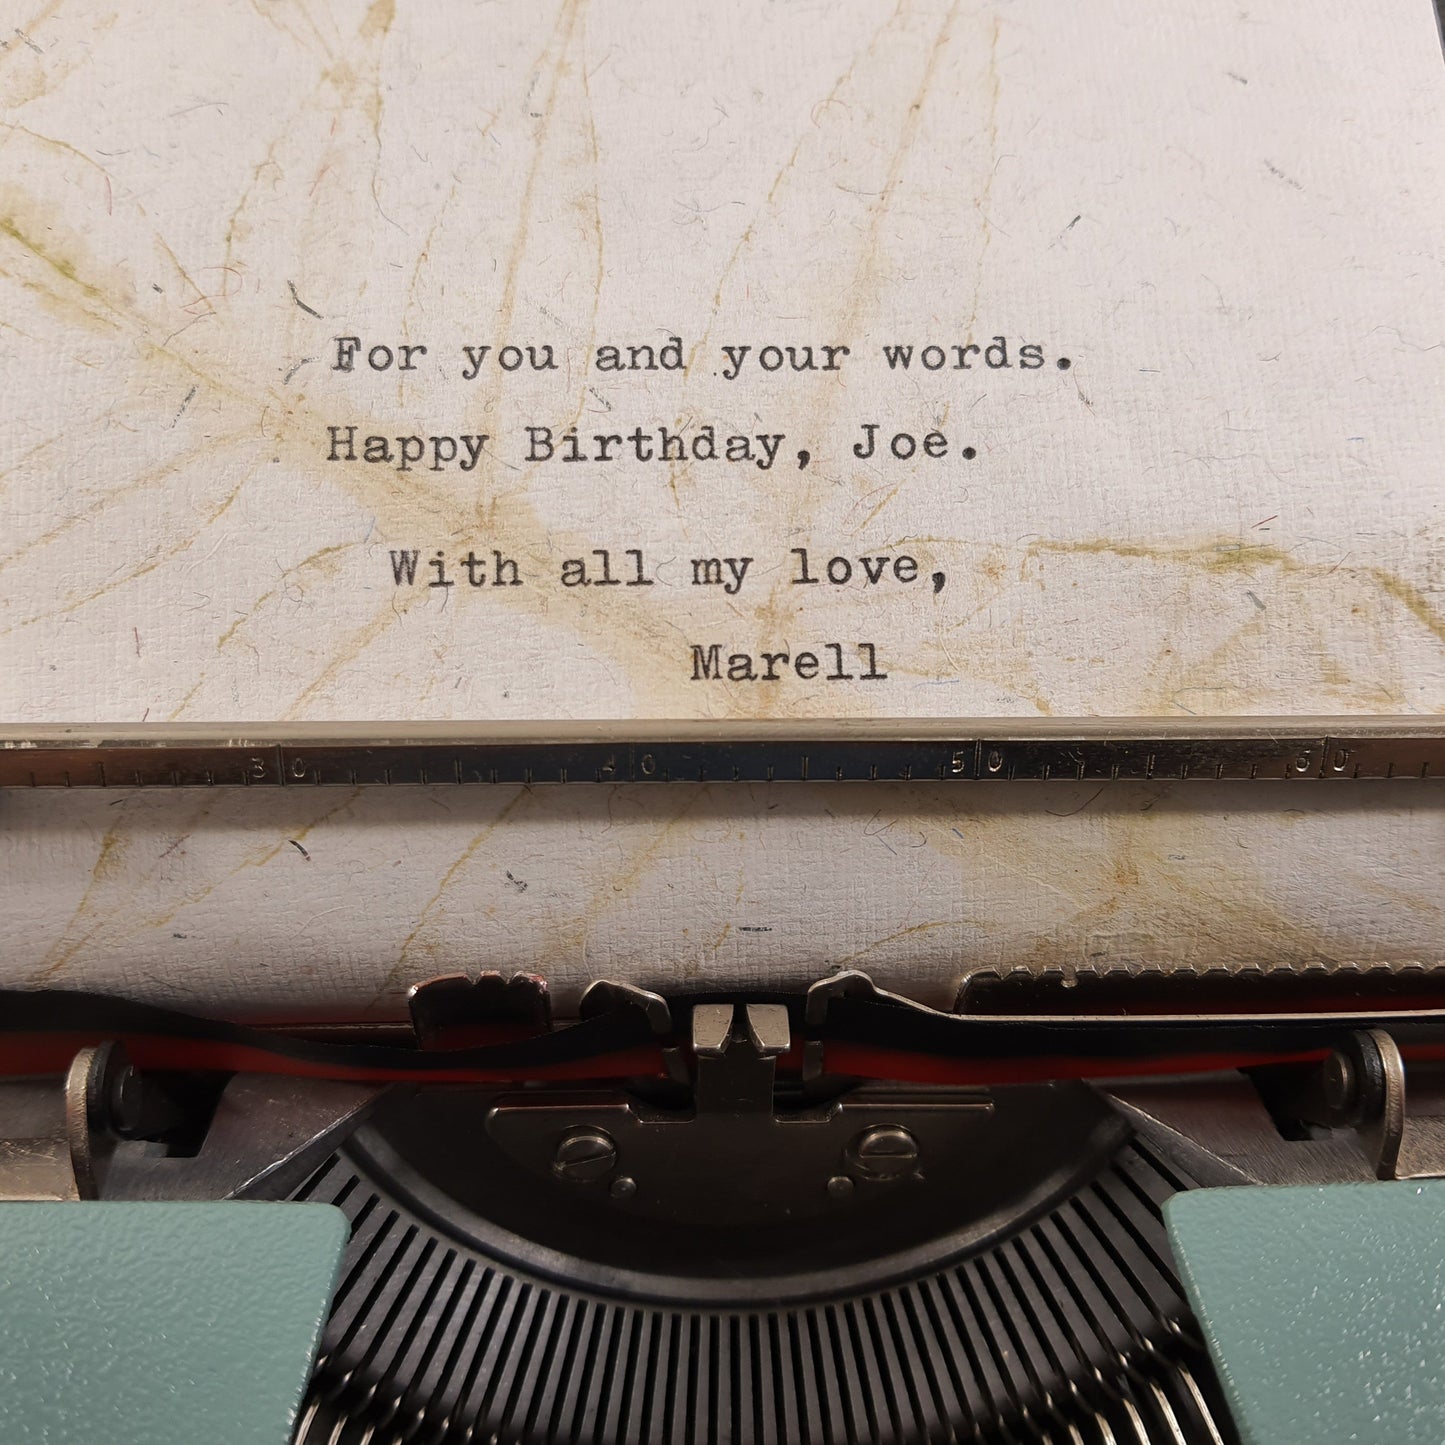 For you and your words.
Happy Birthday, Joe.
With all my love,
Marell
30 40 50 60